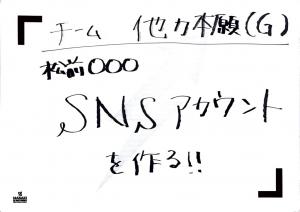 チーム 他力本願(G)
松前○○○
SNSアカウント
を作る!!